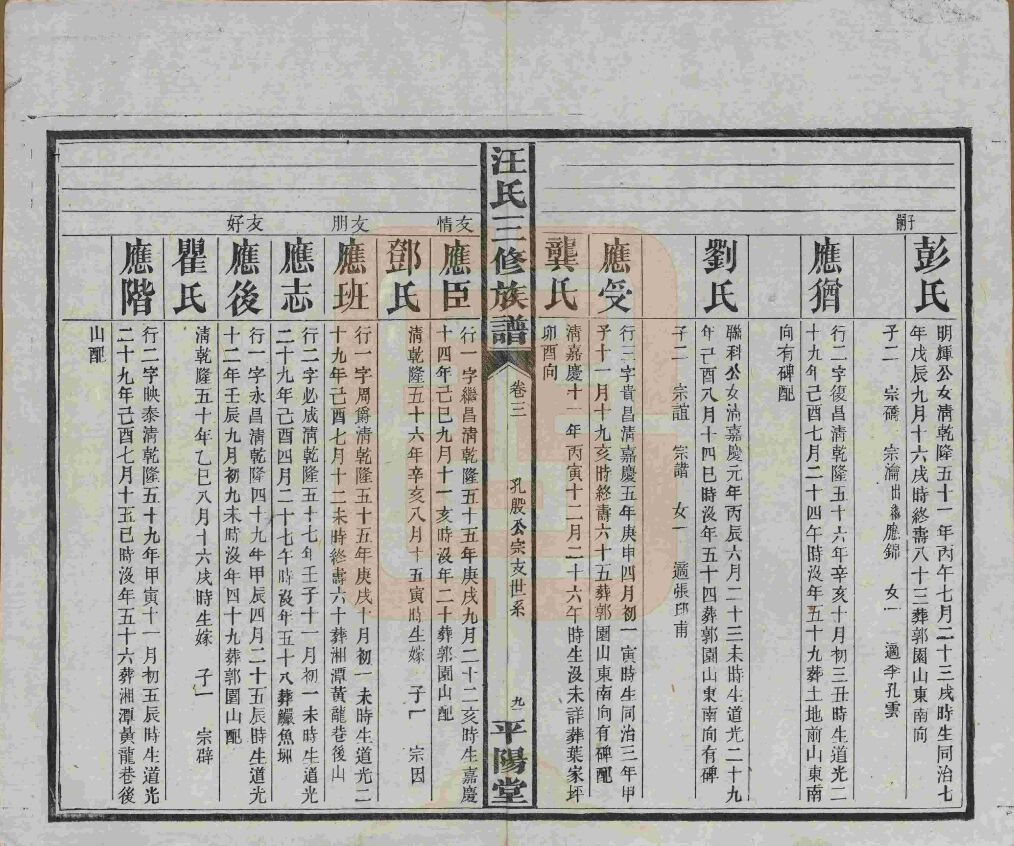 子嗣
彭氏
明輝公女清乾隆五十一年丙午七月二十三戌時生同治七
年戊辰九月十六戌時終壽八十三葬郭園山東南向
子二　宗礄　宗瀹出繼應錦　女一　適李孔雲
應猶
行二字復昌清乾隆五十六年辛亥十月初三丑時生道光二
十九年己酉七月二十四午時沒年五十九葬土地前山東南
向有碑配
劉氏
聯科公女清嘉慶元年丙辰六月二十三未時生道光二十九
年己酉八月十四巳時沒年五十四葬郭園山東南向有碑
子二　宗誼　宗譜　女一　適張邱甫
應受
行三字貴昌清嘉慶五年庚申四月初一寅時生同治三年甲
子十一月十九亥時終壽六十五葬郭園山東南向有碑配
龔氏
清嘉慶十一年丙寅十二月二十六午時生沒未詳葬葉家坪
卯酉向
汪氏三修族譜
卷三
孔殷公宗支世系
九
平陽堂
友情
應臣
行一字繼昌清乾隆五十五年庚戌九月二十二亥時生嘉慶
十四年己巳九月十一亥時沒年二十葬郭園山配
鄧氏
清乾隆五十六年辛亥八月十五寅時生嫁　子一　宗因
友朋
應班
行一字周爵清乾隆五十五年庚戌十月初一未時生道光二
十九年己酉七月十二未時終壽六十葬湘潭黃龍巷後山
應志
行二字必成清乾隆五十七年壬子十一月初一未時生道光
二十九年己酉四月二十七午時沒年五十八葬鱺魚坳
友好
應後
行一字永昌清乾隆四十九年甲辰四月二十五辰時生道光
十二年壬辰九月初九未時沒年四十九葬郭園山配
瞿氏
清乾隆五十年乙巳八月十六戌時生嫁　子一　宗辟
應階
行二字映泰清乾隆五十九年甲寅十一月初五辰時生道光
二十九年己酉七月十五巳時沒年五十六葬湘潭黃龍巷後
山配